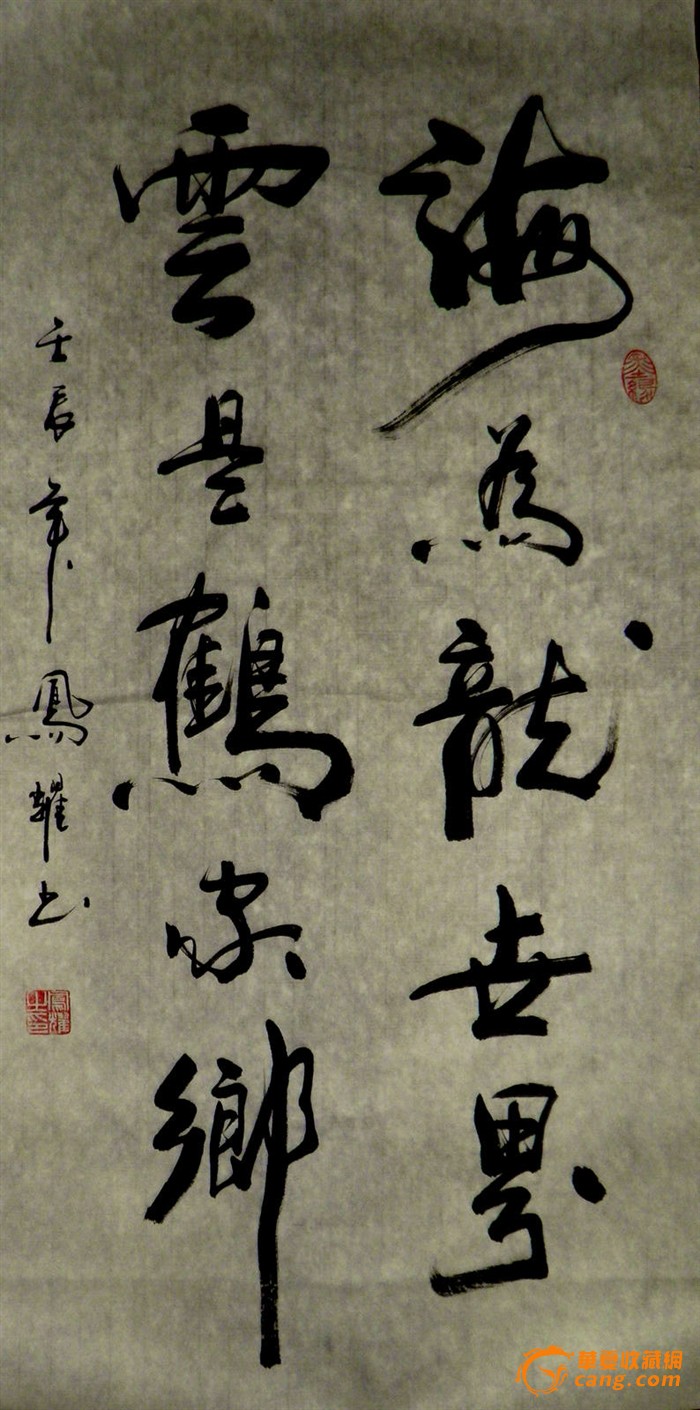 海為龍世界
雲是鶴家鄉
壬辰年鳳耀书
鳳耀之印
華夏收藏網
cang.com